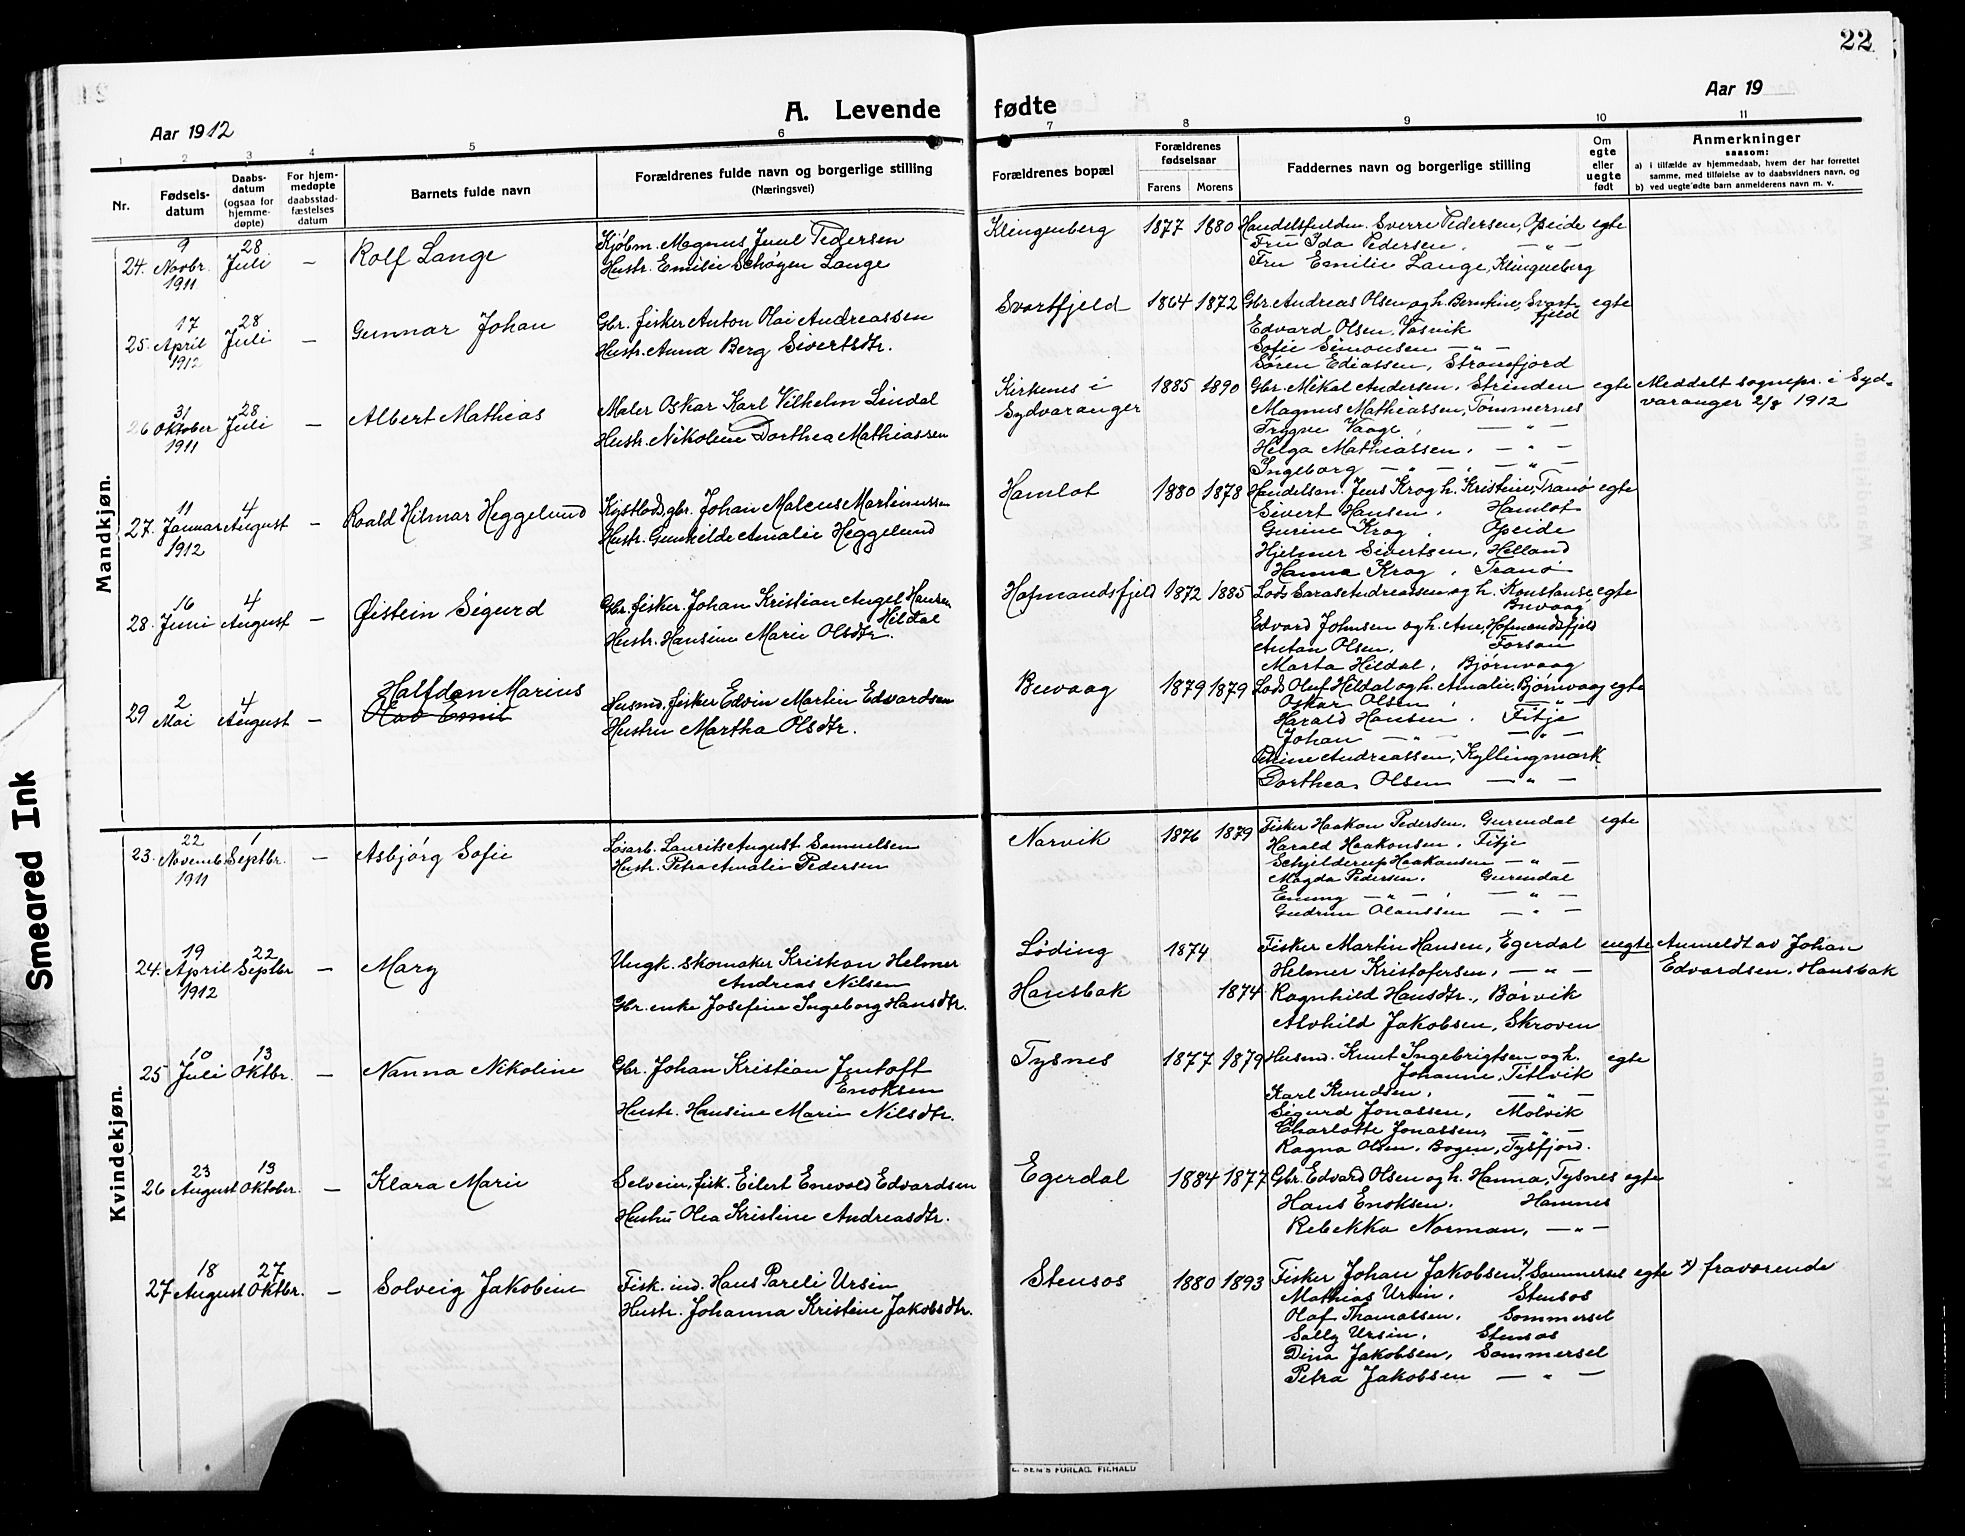 22
Aar 1912
A. Levende fødte
Aar 19
1 2 3 4 5 6 7 8 9 10 11
Nr.
Fødsels-
datum
Daabs-
datum
(ogsaa for
hjemme-
døpte)
For hjem-
medøpte
daabsstad-
fæstelses
datum
Barnets fulde navn
Forældrenes fulde navn og borgerlige stilling
(Næringsvei)
Forældrenes bopæl
Forældrenes
fødselsaar
Farens Morens
Faddernes navn og borgerlige stilling
Om
egte
eller
uegte
født
Anmerkninger
saasom:
a) i tilfælde av hjemmedaab, hvem der har forrettet
samme, med tilføielse av to daabsvidners navn, og
b) ved uegte født barn anmelderens navn m. v.
Mandkjøn.
24. 9 Novbr. 1911 28 Juli – Rolf Lange
Kjøbm. Magnus Juul Pedersen
Hustr. Emilie Schøyen Lange
Klingenberg 1877 1880
Sverre Pedersen, Opeide egte
Fru Ida Pedersen. — „ —
Fru Emilie Lange, Klingenberg
25. 17 April 1912 28 Juli – Gunnar Johan
Gbr. fisker Anton Olai Andreassen
Hustr. Anna Berg Sivertsdtr.
Svartfjeld 1864 1872
Gbr. Andreas Olsen og h. Bernhine, Svart-
fjeld egte
Edvard Olsen. Vasvik
Sofie Simonsen — „ —
Søren Ediassen, Stranefjord
26 31 Oktober 1911 28 Juli – Albert Mathias
Maler Oskar Karl Vilhelm Lindal
Hustr. Nikoline Dorthea Mathiassen
Kirkenes i
Sydvaranger
1885 1890
Gbr. Mikal Andersen. Strinden egte
Magnus Mathiassen, Tømmernes
Trygve Vaage, — „ —
Helga Mathiassen. — „ —
Ingeborg — „ — , — „ —
Meddelt sognepr. i Syd-
varanger 2/8 1912
27. 11 Januar 1912 4 August – Roald Hilmar Heggelund
Kystlods, gbr. Johan Malcus Martinussen
Hustr. Gunhilde Amalie Heggelund
Hamlot 1880 1878
Handelsm. Jens Krog h. Kristine, Tranø egte
Sivert Hansen. Hamlot
Gurine Krog. Opeide
Hjelmer Sivertsen, Helland
Hanna Krog, Tranø
28. 16 Juni 4 August – Øistein Sigurd
Gbr. fisker. Johan Kristian Angel Hansen
Hildal
Hustr. Hansine Marie Olsdtr.
Hofmandsfjeld 1872 1885
Lods Andreasen og h. Konstanse egte
Buvaag
Edvard Johnsen og h. Ane, Hofmandsfjeld
Anton Olsen. Forsan
Marta Hildal, Bjørnvaag
29 2 Mai 4 August – Halfdan Marius
Olav Emil
Husmd. fisker Edvin Martin Edvardsen
Hustru Martha Olsdtr.
Buvaag 1879 1879
Lods Oluf Hildal og h. Amalie. Bjørnvaag egte
Oskar Olsen, — „ —
Harald Hansen. Fitje
Johan — „ — — „ —
Andreassen, Kyllingmark
Dorthea Olsen — „ —
Kvindekjøn.
23. 22 Novemb. 1911 1 Septbr. – Asbjørg Sofie
Løsarb. Laurits August Samuelsen
Hustr. Petra Amalie Pedersen
Narvik 1876 1879
Fisker Haakon Pedersen. Gurendal egte
Harald Haakonsen. Fitje
Schjelderup Haakonsen — „ —
Magda Pedersen. Gurendal
Emmy — „ — , — „ —
Gudrun Olaussen — „ —
24. 19 April 1912 22 Septbr – Mary
Ungk. skomaker Kristian Helmer
Andreas Nilsen
Gbr. enke Josefine Ingeborg Hansdtr.
Løding 1874
Hansbak 1874
Fisker Martin Hansen, Egerdal uegte
Helmer Kristofersen, — „ —
Ragnhild Hansdtr., Børvik
Alvhild Jakobsen, Skroven
Anmeldt av Johan
Edvardsen. Hansbak
25 10 Juli 13 Oktbr. – Nanna Nikoline
Gbr. Johan Kristian Jentoft
Enoksen
Hustr. Hansine Marie Nilsdtr.
Tysnes 1877 1879
Husmd. Knut Ingebrigtsen og h. egte
Johanne, Titlvik
Karl Knudsen, — „ —
Sigurd Jonassen, Molvik
Charlotte Jonassen, — „ —
Ragna Olsen. Bogen, Tysfjord.
26 23 August 13 Oktober. – Klara Marie
Selveier, fisk. Eilert Enevold Edvardsen
Hustru Olea Kristine Andreasdtr.
Egerdal 1884 1877
Gbr. Edvard Olsen og h. Hanna, Tysnes egte
Hans Enoksen. Hamnes
Rebekka Norman, — „ —
27 18 August 27 Oktbr. – Solveig Jakobine
Fisk. ind. Hans Pareli Ursin
Hustr. Johanna Kristine Jakobsdtr.
Stensos 1880 1893
Fisker Johan Jakobsen x), Sommersel egte x) fraværende
Mathias Ursin. Stensos
Olaf Thomassen. Sommersel
Sally Ursin. Stensos
Dina Jakobsen, Sommersel
Petra Jakobsen — „ —
E. SEM'S FORLAG, F.HALD
Smeared Ink